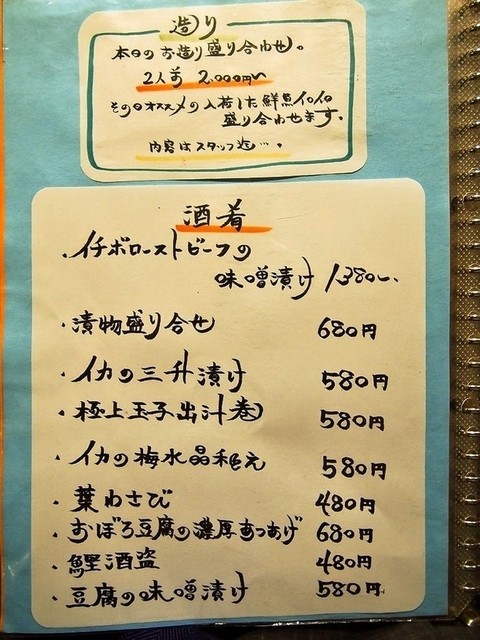 造り
本日のお造り盛り合わせ。
2人前 2,000円〜
その日オススメの入荷した鮮魚イロイロ
盛り合わせます。
内容はスタッフ迄…。
酒肴
・イチボローストビーフの
味噌漬け 1380〜
・漬物盛り合せ 680円
・イカの三升漬け 580円
・極上玉子出汁巻 580円
・イカの梅水晶和え 580円
・葉わさび 480円
・おぼろ豆腐の濃厚あつあげ 680円
・鰹酒盗 480円
・豆腐の味噌漬け 580円